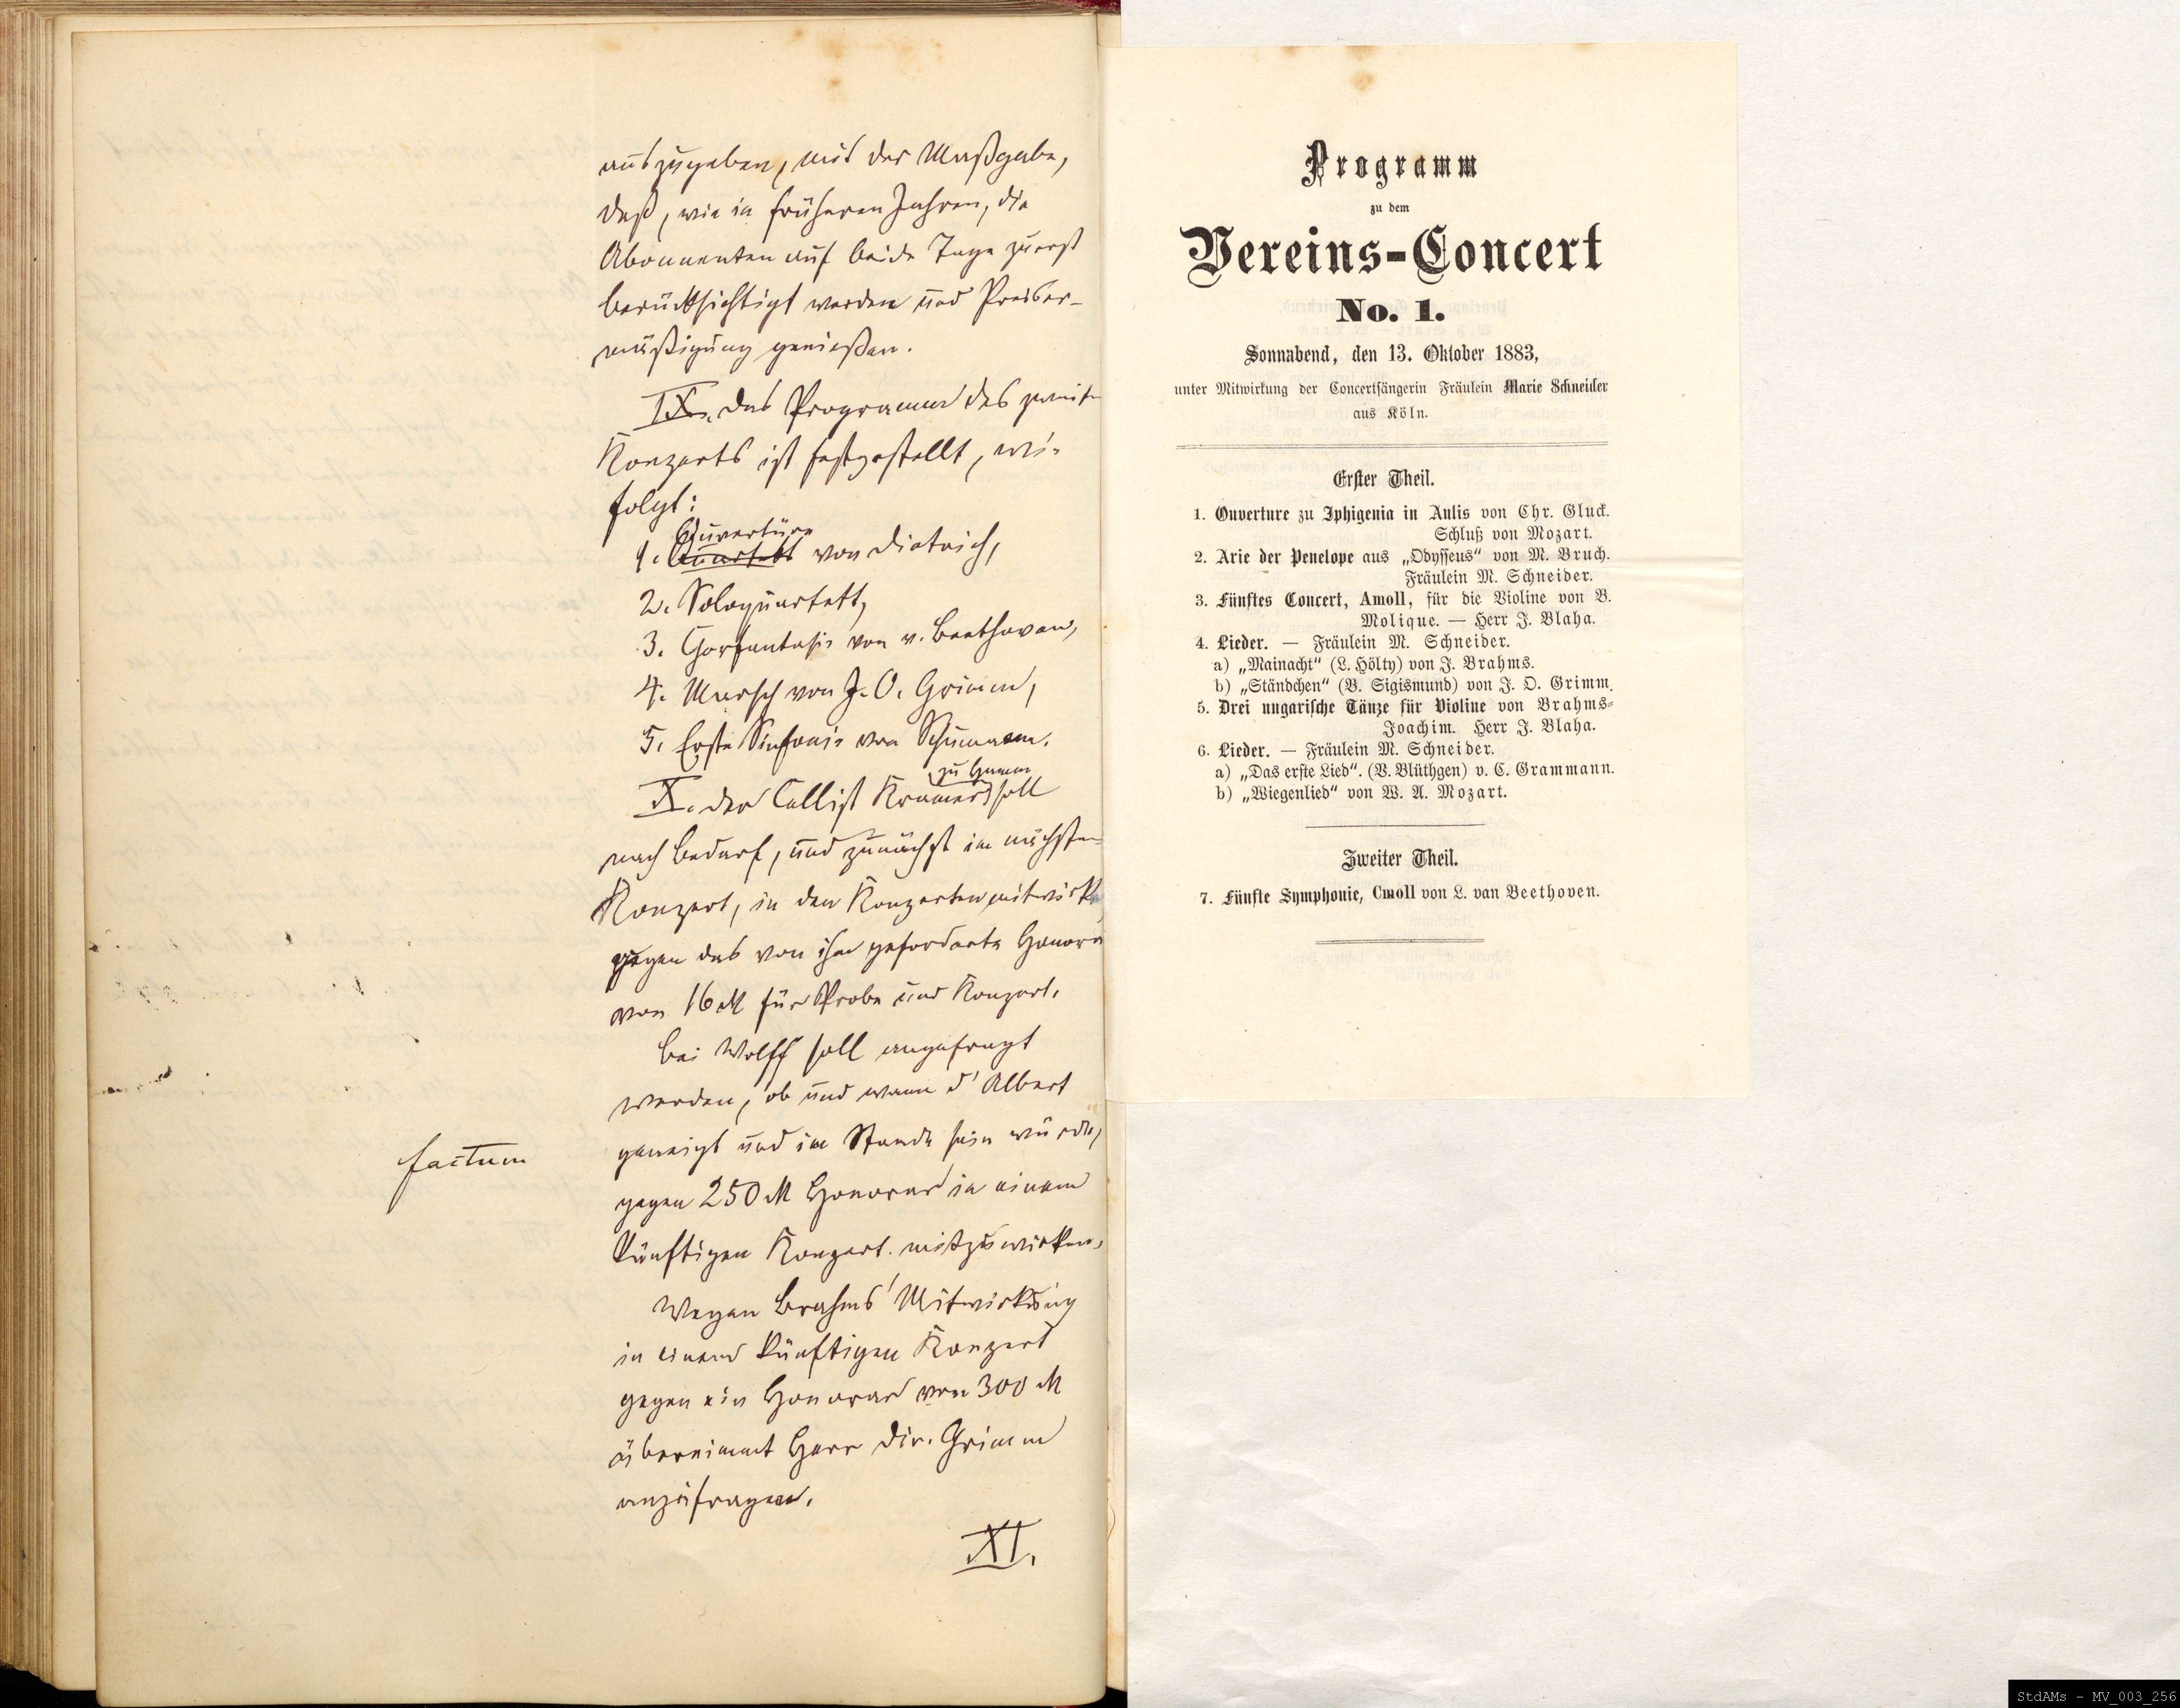 auszugeben, mit der Maßgabe,
daß, wie in früheren Jahren, die
Abonnenten auf beide Tage zuerst
berücksichtigt werden und Preiser-
mäßigung genießen.
IX. Das Programm des zweiten
Konzerts ist festgestellt, wie
folgt:
Ouvertüre
1. Quartett von Dietrich,
2. Soloquartett,
3. Chorfantasie von v. Beethoven,
4. Marsch von J. O. Grimm,
5. Erste Sinfonie von Schumann.
zu Hamm
X. Der Cellist Kramer soll
nach Bedarf, und zunächst im nächsten
Konzert, in den Konzerten mitwirken
gegen das von ihm geforderte Honorar
von 16 M für Probe und Konzert.
Bei Wolff soll angefragt
werden, ob und wann d'Albert
geneigt und im Stande sein würde,
factum
gegen 250 M Honorar in einem
künftigen Konzert mitzuwirken.
Wegen Brahms' Mitwirkung
in einem künftigen Konzert
gegen ein Honorar von 300 M
übernimmt Herr Dir. Grimm
anzufragen.
XI.
Programm
zu dem
Vereins-Concert
No. 1.
Sonnabend, den 13. Oktober 1883,
unter Mitwirkung der Concertsängerin Fräulein Marie Schneider
aus Köln.
Erster Theil.
1. Ouverture zu Iphigenia in Aulis von Chr. Gluck.
Schluß von Mozart.
2. Arie der Penelope aus „Odysseus“ von M. Bruch.
Fräulein M. Schneider.
3. Fünftes Concert, Amoll, für die Violine von B.
Molique. — Herr J. Blaha.
4. Lieder. — Fräulein M. Schneider.
a) „Mainacht“ (L. Hölty) von J. Brahms.
b) „Ständchen“ (B. Sigismund) von J. O. Grimm.
5. Drei ungarische Tänze für Violine von Brahms-
Joachim. Herr J. Blaha.
6. Lieder. — Fräulein M. Schneider.
a) „Das erste Lied“. (V. Blüthgen) v. C. Grammann.
b) „Wiegenlied“ von W. A. Mozart.
Zweiter Theil.
7. Fünfte Symphonie, Cmoll von L. van Beethoven.
StdAMs - MV_003_256